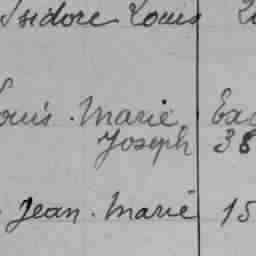 Isidore Louis
Louis. Marie
Joseph 38
Jean. Marie 15